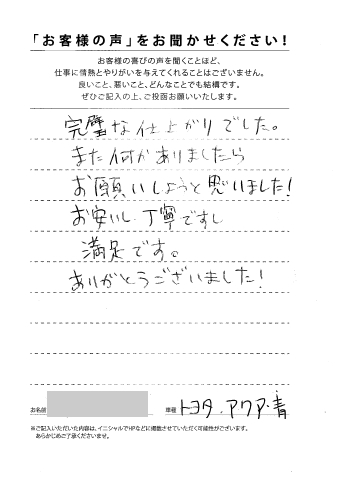 「お客様の声」をお聞かせください!
お客様の喜びの声を聞くことほど、
仕事に情熱とやりがいを与えてくれることはございません。
良いこと、悪いこと、どんなことでも結構です。
ぜひご記入の上、ご投函お願いいたします。
完璧な仕上がりでした。
また何かありましたら
お願いしようと思いました!
お安いし、丁寧ですし
満足です。
ありがとうございました!
お名前
車種 トヨタ.アクア・青
※ご記入いただいた内容は、イニシャルでHPなどに掲載させていただく可能性がございます。
あらかじめご了承くださいませ。